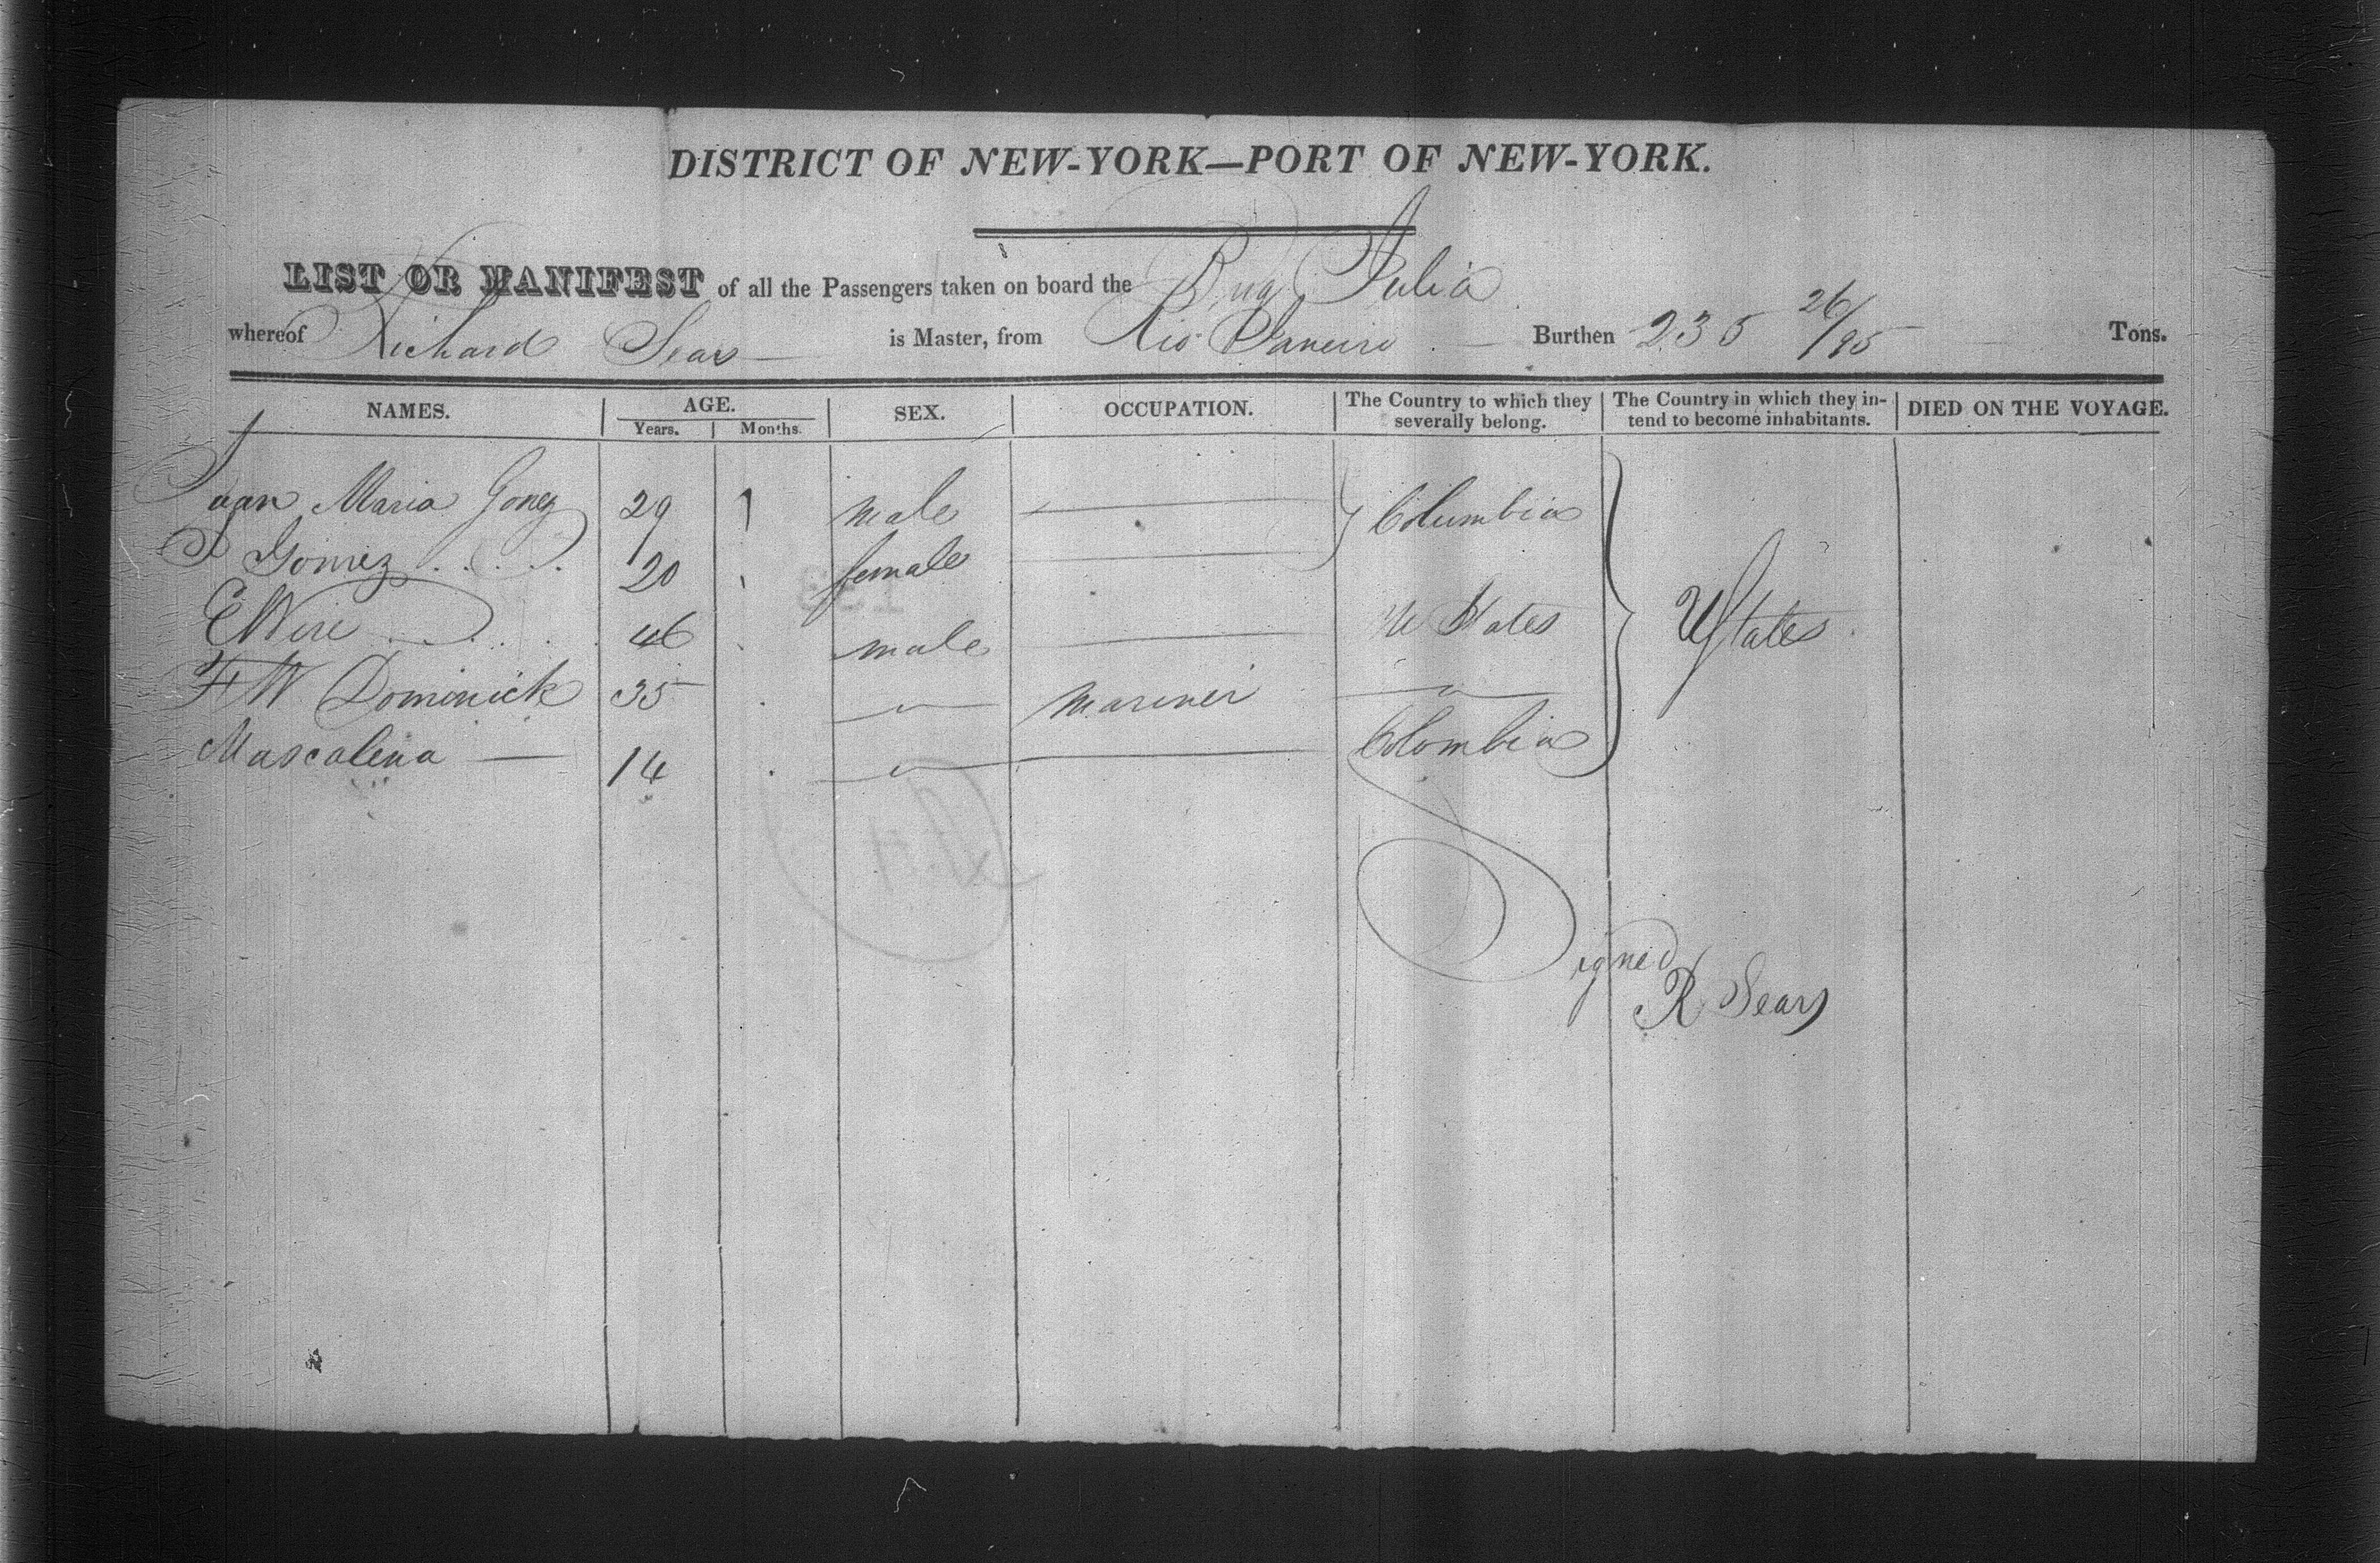 DISTRICT OF NEW-YORK—PORT OF NEW-YORK.
LIST OR MANIFEST of all the Passengers taken on board the Brig Julia
whereof Richard Sears is Master, from Rio Janeiro Burthen 235 26/95 Tons.
NAMES. AGE. Years. Months. SEX. OCCUPATION. The Country to which they severally belong. The Country in which they intend to become inhabitants. DIED ON THE VOYAGE.
Juan Maria Gomez 29 male — Columbia
Gomez 20 female —
E Wire 46 male — U States U States
F W Dominick 35 — " — mariner — " —
Mascalena — 14 — " — Colombia
Signed
R Sears